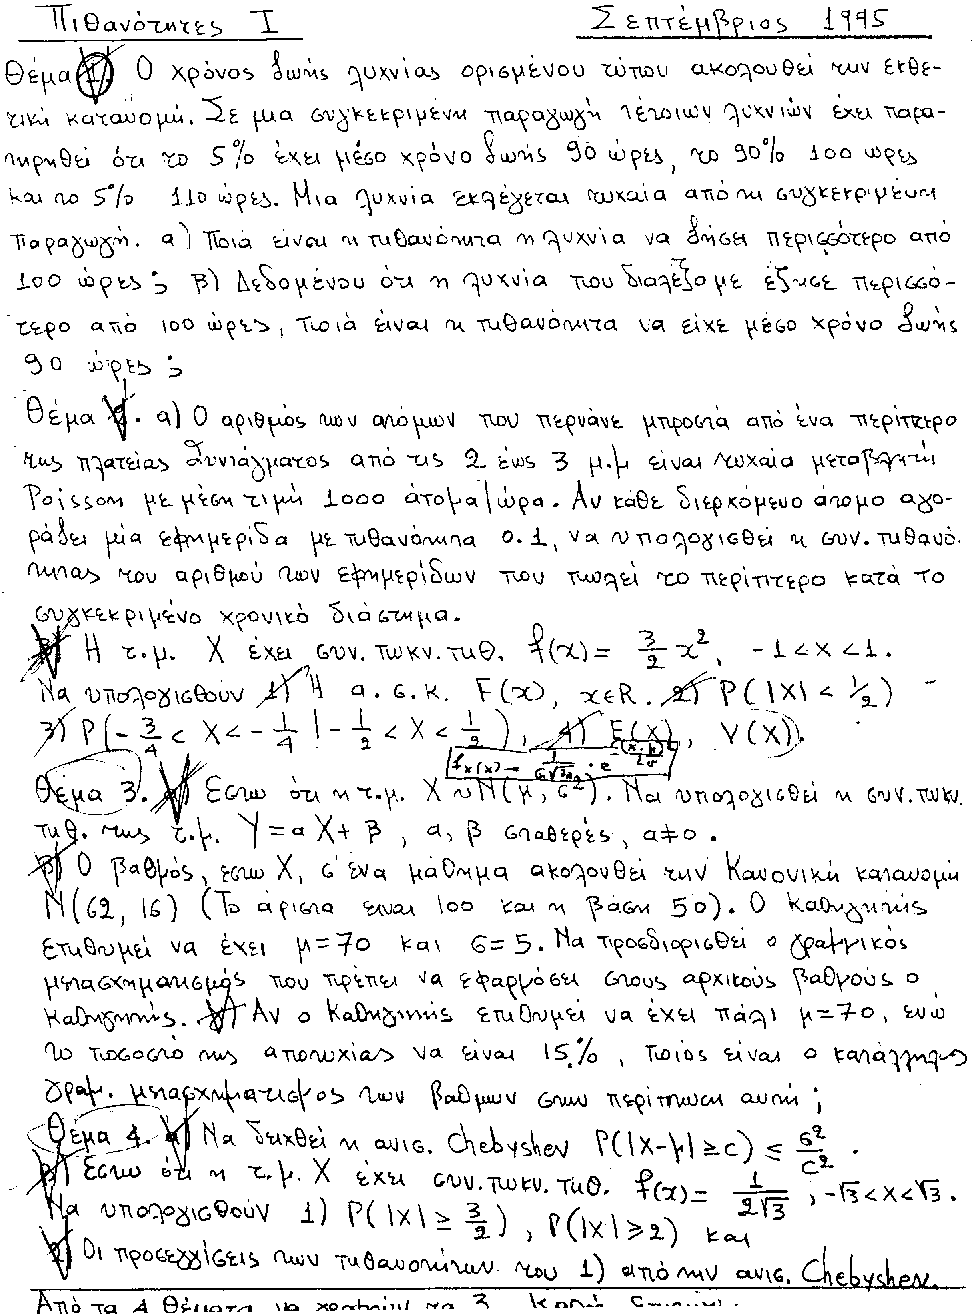 Πιθανότητες Ι Σεπτέμβριος 1995
Θέμα 1. Ο χρόνος ζωής λυχνίας ορισμένου τύπου ακολουθεί την εκθε-
τική κατανομή. Σε μια συγκεκριμένη παραγωγή τέτοιων λυχνιών έχει παρα-
τηρηθεί ότι το 5% έχει μέσο χρόνο ζωής 90 ώρες, το 90% 100 ώρες
και το 5% 110 ώρες. Μια λυχνία εκλέγεται τυχαία από τη συγκεκριμένη
παραγωγή. α) Ποιά είναι η πιθανότητα η λυχνία να ζήσει περισσότερο από
100 ώρες; β) Δεδομένου ότι η λυχνία που διαλέξαμε έζησε περισσό-
τερο από 100 ώρες, ποιά είναι η πιθανότητα να είχε μέσο χρόνο ζωής
90 ώρες;
Θέμα 2. α) Ο αριθμός των ατόμων που περνάνε μπροστά από ένα περίπτερο
της πλατείας Συντάγματος από τις 2 έως 3 μ.μ είναι τυχαία μεταβλητή
Poisson με μέση τιμή 1000 άτομα/ώρα. Αν κάθε διερχόμενο άτομο αγο-
ράζει μία εφημερίδα με πιθανότητα 0.1, να υπολογισθεί η συν. πιθανό-
τητας του αριθμού των εφημερίδων που πωλεί το περίπτερο κατά το
συγκεκριμένο χρονικό διάστημα.
β) Η τ.μ. X έχει συν. πυκν. πιθ. f(x) = 3/2 x², -1 < x < 1.
Να υπολογισθούν 1) Η α.σ.κ. F(x), x∈R. 2) P(|X| < 1/2)
3) P(-3/4 < X < -1/4 | -1/2 < X < 1/2), 4) E(X), V(X).
Θέμα 3. α) Εστω ότι η τ.μ. X ~ N(μ, σ²). Να υπολογισθεί η συν. πυκν.
πιθ. της τ.μ. Y = αX + β, α, β σταθερές, α≠0.
β) Ο βαθμός, εστω X, σ' ένα μάθημα ακολουθεί την Κανονική κατανομή
N(62, 16) (Το άριστα είναι 100 και η βάση 50). Ο Καθηγητής
επιθυμεί να έχει μ=70 και σ=5. Να προσδιορισθεί ο γραμμικός
μετασχηματισμός που πρέπει να εφαρμόσει στους αρχικούς βαθμούς ο
Καθηγητής. γ) Αν ο Καθηγητής επιθυμεί να έχει πάλι μ=70, ενώ
το ποσοστό της αποτυχίας να είναι 15%, ποιός είναι ο κατάλληλος
γραμ. μετασχηματισμος των βαθμων στην περίπτωση αυτή;
Θέμα 4. α) Να δειχθεί η ανισ. Chebyshev P(|X-μ| ≥ c) ≤ σ²/c².
β) Εστω ότι η τ.μ. X έχει συν. πυκν. πιθ. f(x) = 1/(2√3), -√3 < x < √3.
Να υπολογισθούν 1) P(|X| ≥ 3/2), P(|X| ≥ 2) και
2) Οι προσεγγίσεις των πιθανοτήτων του 1) από την ανισ. Chebyshev.
Από τα 4 θέματα να γραφούν τα 3. Καλή